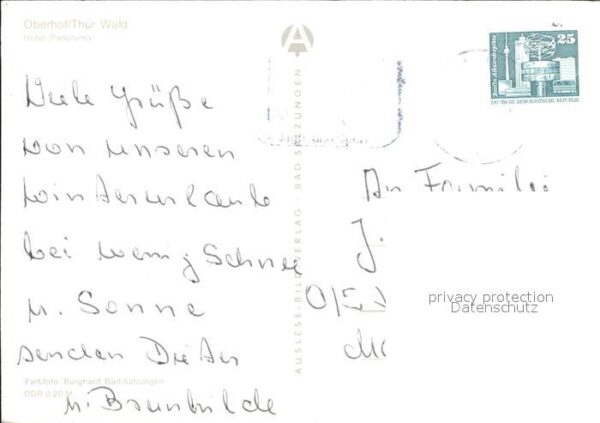 Oberhof/Thür Wald
Hotel "Panorama"
Viele Grüße
von unseren
Winterurlaub
bei wenig Schnee
u. Sonne
senden Dieter
u. Brunhilde
Farbfoto: Burghard, Bad Salzungen
DDR 0,20 M
AUSLESE-BILD-VERLAG - BAD SALZUNGEN
A
25
Berlin, Alexanderplatz
DEUTSCHE DEMOKRATISCHE REPUBLIK
An Familie
J.
privacy protection
Datenschutz